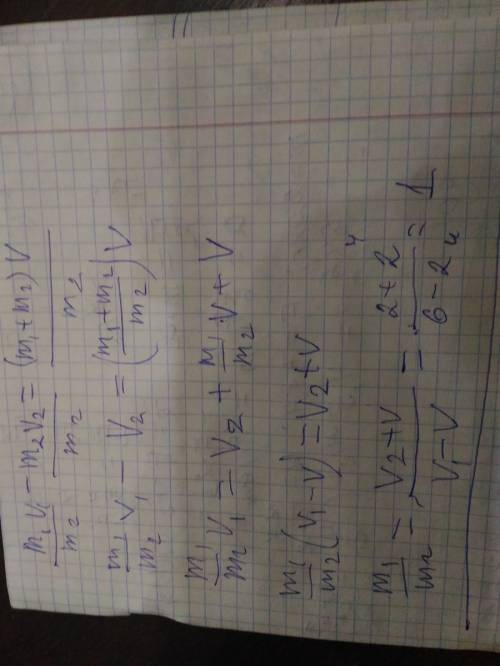 m₁V₁/m₂ - m₂V₂/m₂ = (m₁+m₂)V/m₂
m₁/m₂ V₁ - V₂ = ((m₁+m₂)/m₂)V
m₁/m₂ V₁ = V₂ + m₁/m₂ · V + V
m₁/m₂ (V₁-V) = V₂+V
m₁/m₂ = (V₂+V)/(V₁-V) = (2+2)/(6-2) = 1
4
4